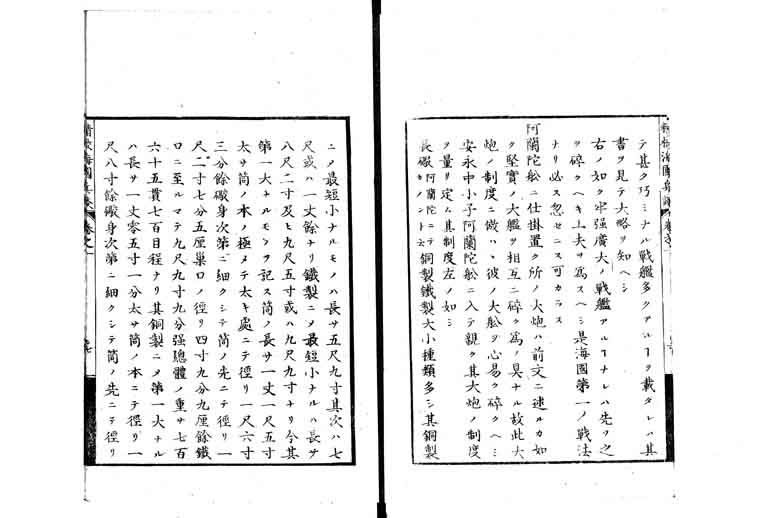 テ甚タ巧ミナル戰艦多クアルヿヲ載タレハ其
書ヲ見テ大略ヲ知ヘシ
右ノ如ク牢强廣大ノ戰艦アルヿナレハ先ツ之
ヲ碎クヘキ工夫ヲ爲スヘシ是海國第一ノ戰法
ナリ必ス忽セニス可カラス
阿蘭陀舩ニ仕掛置ク所ノ大炮ハ前文ニ述ルカ如
ク堅實ノ大艦ヲ相互ニ碎ク爲ノ具ナル故此大
炮ノ制度ニ倣ハヽ彼ノ大舩ヲ心易ク碎クヘシ
安永中小子阿蘭陀舩ニ入テ親ク其大炮ノ制度
ヲ量リ定ム其制度左ノ如シ
長礮阿蘭陀ニテカノントト云銅製鐵製大小種類多シ其銅製
ニノ最短小ナルモノハ長サ五尺九寸其次ハ七
尺或ハ一丈餘ナリ鐵製ニメ最短小ナルハ長サ
八尺二寸及ヒ九尺五寸或ハ九尺九寸ナリ今其
第一大ナルモノヲ記ス筒ノ長サ一丈一尺五寸
太サ筒ノ本ノ極メテ太キ處ニテ徑リ一尺六寸
三分餘礮身次第ニ細クシテ筒ノ先ニテ徑リ一
尺二寸七分五厘巢口ノ徑リ四寸九分九厘餘鐵
口ニ至ルマテ九尺九寸九分强總體ノ重サ七百
六十五貫七百目程ナリ其銅製ニメ第一大ナル
ハ長サ一丈零五寸一分太サ筒ノ本ニテ徑リ一
尺八寸餘礮身次第ニ細クシテ筒ノ先ニテ徑リ